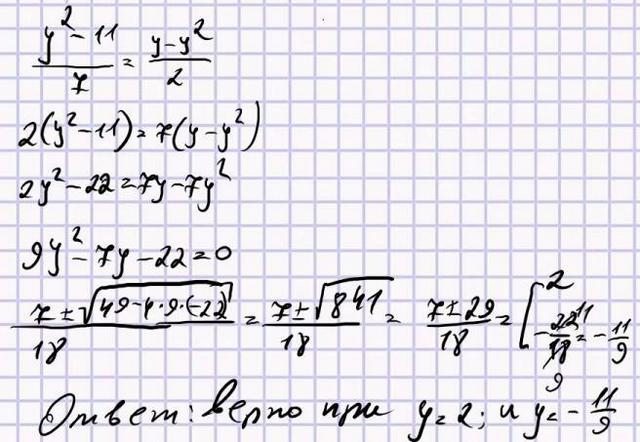 (y² - 11)/7 = (y - y²)/2
2(y² - 11) = 7(y - y²)
2y² - 22 = 7y - 7y²
9y² - 7y - 22 = 0
(7 ± √(49 - 4·9·(-22)))/18 = (7 ± √841)/18 = (7 ± 29)/18 = [2; -22/18 = -11/9
Ответ: верно при y = 2; и y = -11/9